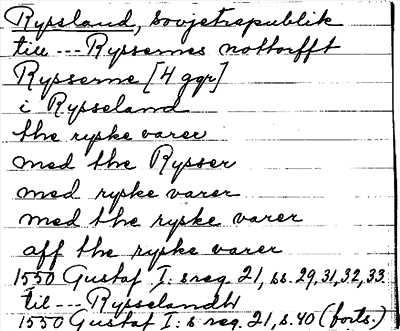 Ryssland, sovjetrepublik
till --- Ryssernes nottorfft
Rysserne [4 ggr]
i Rysseland
the ryske varer
med the Rysser
med ryske varer
med the ryske varer
aff the ryske varer
1550 Gustaf I: s reg. 21, ss. 29, 31, 32, 33
til --- Rysselandh
1550 Gustaf I: s reg. 21, s. 40 (forts.)